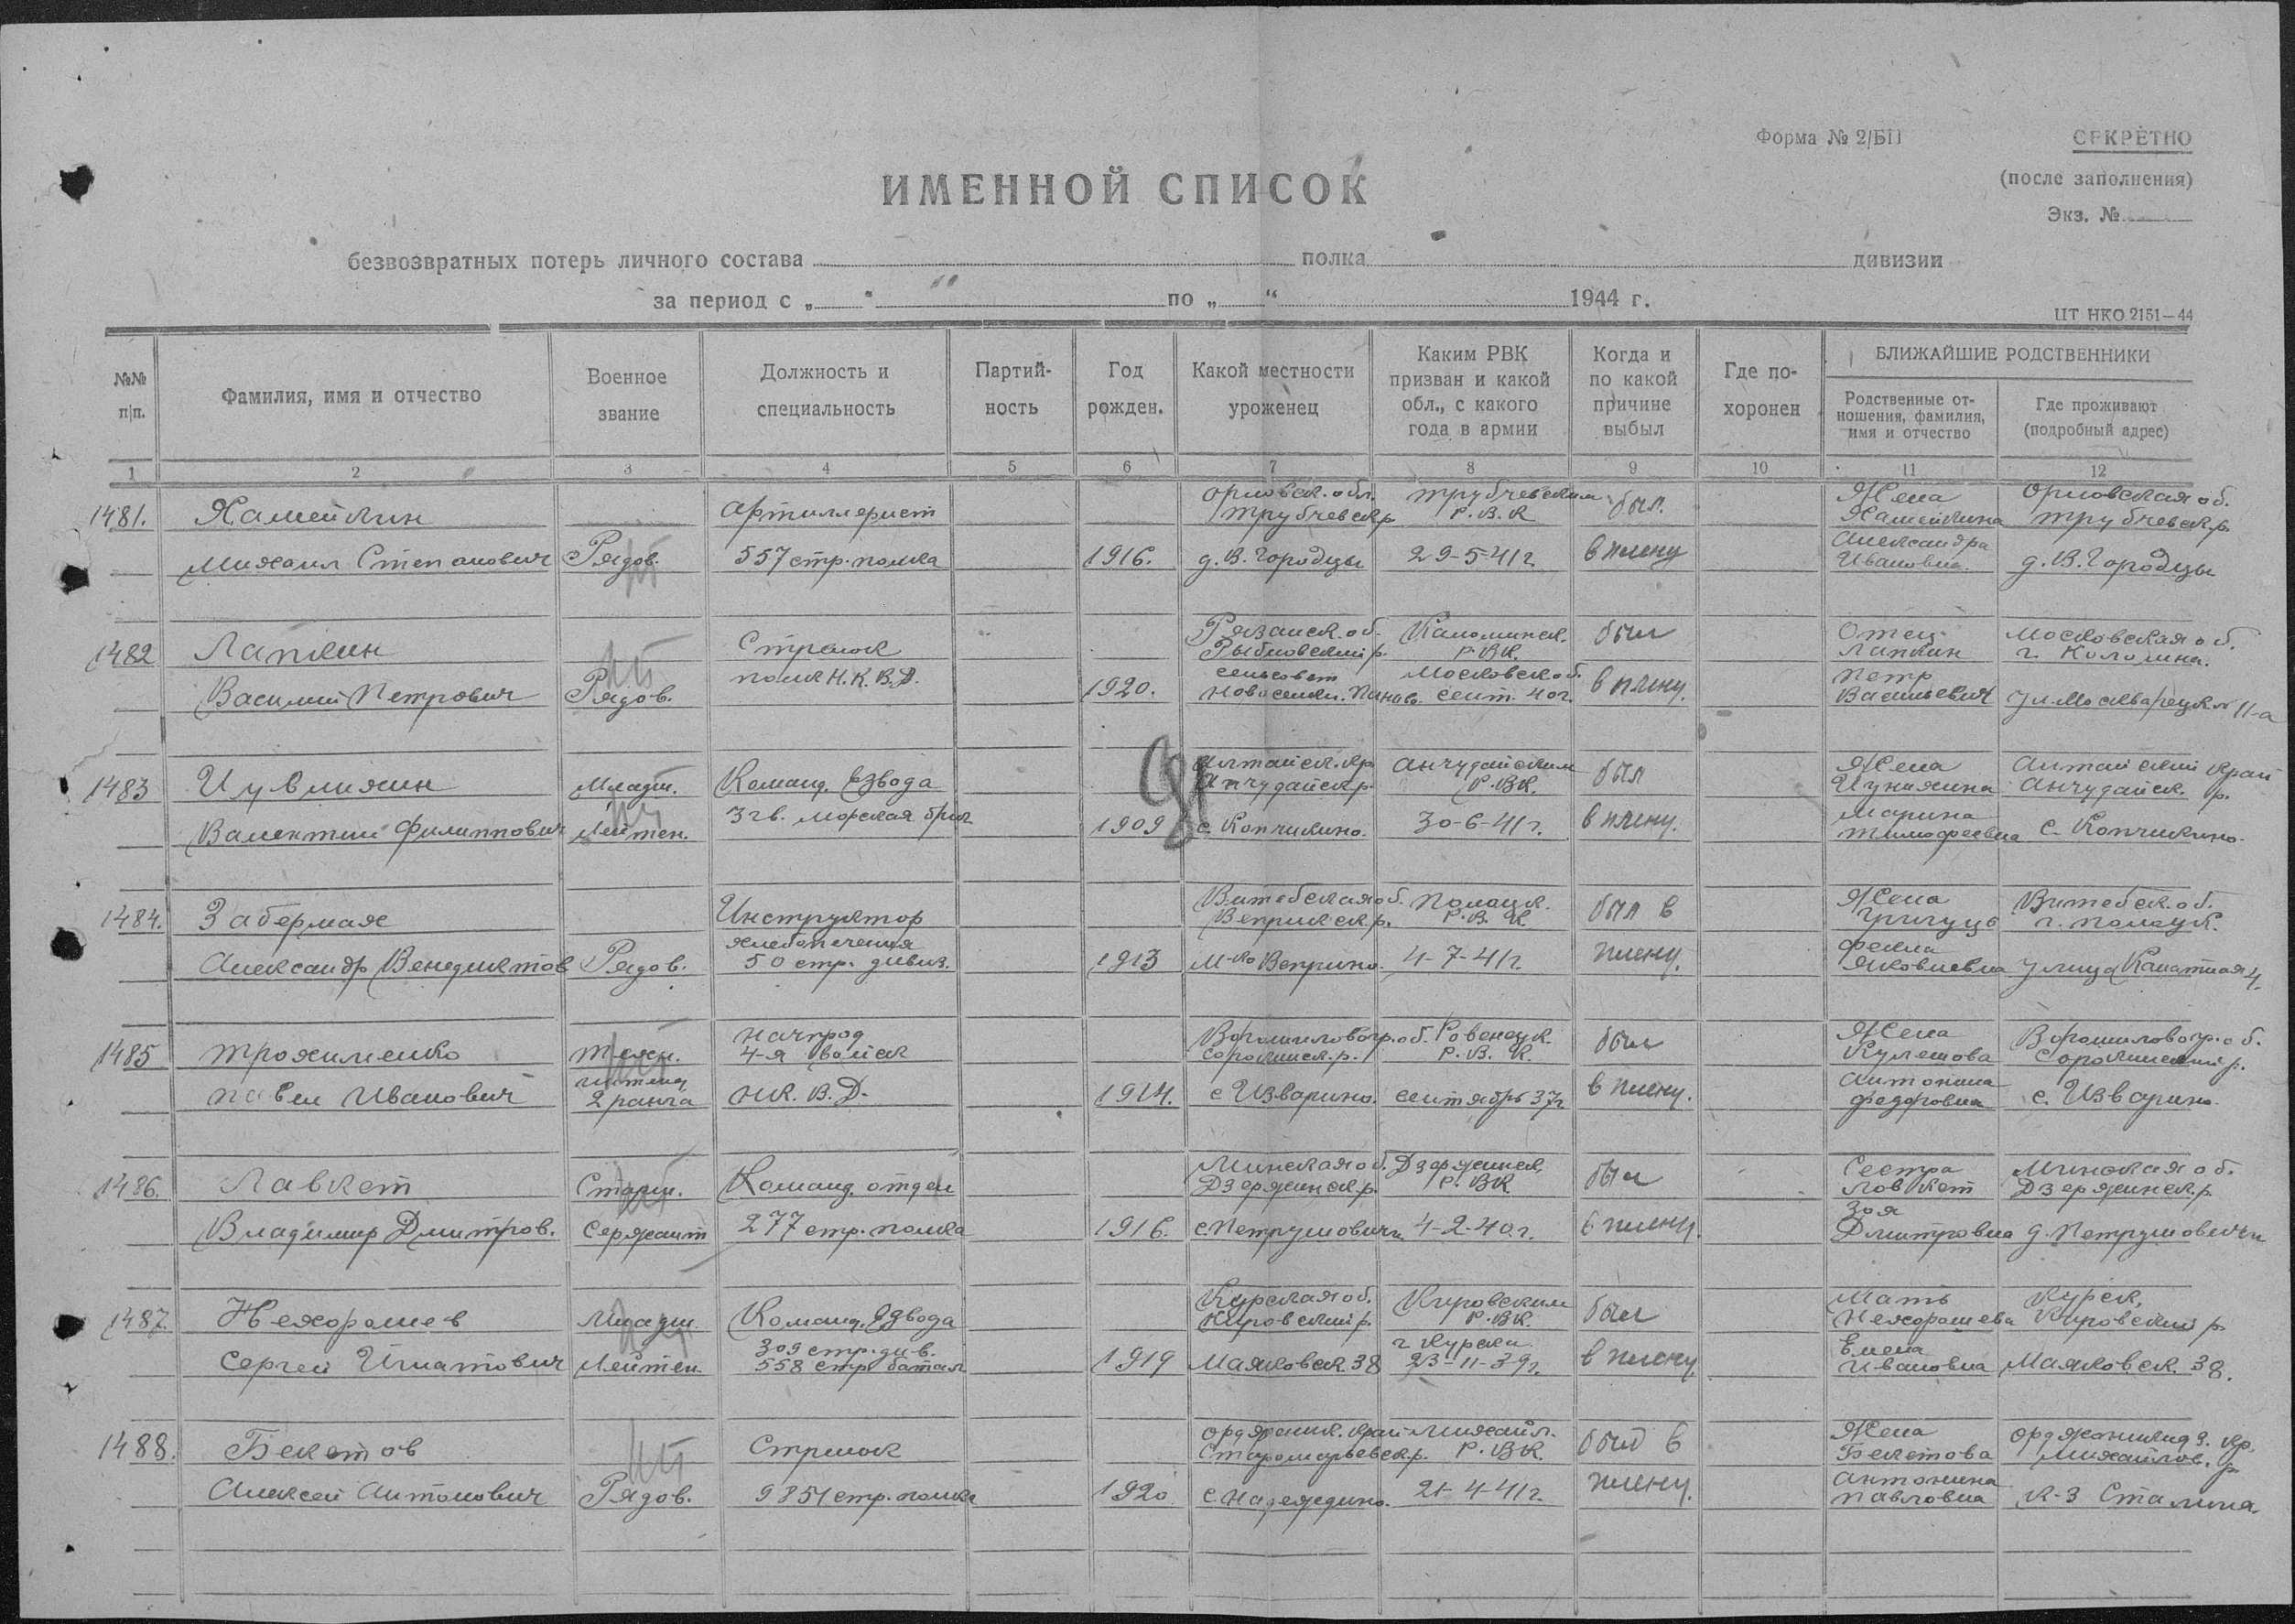 Форма № 2/БП
СЕКРЕТНО
(после заполнения)
Экз. №
ИМЕННОЙ СПИСОК
безвозвратных потерь личного состава полка дивизии
за период с „ “ по „ “ 1944 г.
ЦТ НКО 2151—44
№№ п/п.
Фамилия, имя и отчество
Военное звание
Должность и специальность
Партий-
ность
Год рожден.
Какой местности уроженец
Каким РВК призван и какой обл., с какого года в армии
Когда и по какой причине выбыл
Где по-
хоронен
БЛИЖАЙШИЕ РОДСТВЕННИКИ
Родственные от-
ношения, фамилия,
имя и отчество
Где проживают
(подробный адрес)
1 2 3 4 5 6 7 8 9 10 11 12
1481. Хамейкин артиллерист Орловск. обл. Трубчевск р. Трубчевским Р.В.К был Жена Хамейкина Орловская об. Трубчевск р.
Михаил Степанович Рядов. 557 стр. полка 1916. д. В. Городцы 29-5-41 г. в плену Александра Ивановна. д. В. Городцы
1482 Лапкин Стрелок Рязанск. об. Рыбновский р. Каломинск. Р.ВК. был Отец Лапкин Московская об. г. Коломна.
Василий Петрович Рядов. полк Н.К.В.Д. 1920. сельсовет Новоселки. Московск об. сент. 40 г. в плену. Петр Васильевич ул. Москварецк № 11-а
1483 Младш. Команд. взвода Алтайск. кр Анчудайск р. Анчудайским Р.ВК. был Жена Алтайский край Анчудайск. р.
Валентин Филиппович Лейтен. 3 гв. морская бриг. 1909 с. Копчикино. 30-6-41 г. в плену. Марина Тимофеевна с. Копчикино.
1484. Забермах Инструктор Витебская об. Ветринск р. Полоцк. Р.В.К. был в Жена Витебск. об. г. Полоцк.
Александр Венедиктов Рядов. хлебопечения 50 стр. дивиз. 1913 м-ко Ветрино. 4-7-41 г. плену. Фекла Яковлевна улица Канатная 4.
1485 Трохименко Техн. начпрод 4-я войск Ворошиловогр. об. Сорокинск. р. Ровенецк. Р.В.К. был Жена Кулешова Ворошиловогр. об. Сорокинский р.
Павел Иванович интенд. 2 ранга НК.В.Д. 1914. с Изварино. сентябрь 37 г. в плену. Антонина Федоровна с. Изварино.
1486. Лавкет Старш. Команд. отдел Минская об. Дзержинск. р. Дзержинск. Р.ВК был Сестра Ловкет Минская об. Дзержинск. р.
Владимир Дмитров. сержант 277 стр. полка 1916. с. Петруловичи 4-2-40 г. в плену. Зоя Дмитровна д. Петруловичи
1487. Нехорошев Младш. Команд. взвода Курская об. Кировский р. Кировским Р.ВК. был Мать Нехорошева Курск, Кировский р
Сергей Игнатович Лейтен. 309 стр. див. 558 стр. батал 1919 Маяковск. 38 г. Курска 23-11-39 г. в плену. Елена Ивановна Маяковск. 38.
1488. Бекетов Стрелок Орджоник. край Старомарьевск. р. Михайл. Р.ВК. был в Жена Бекетова Орджоникидз. кр. Михайлов. р
Алексей Антонович Рядов. 985 стр. полка 1920 с. Надеждино. 21-4-41 г. плену. Антонина Павловна к-з Сталина.